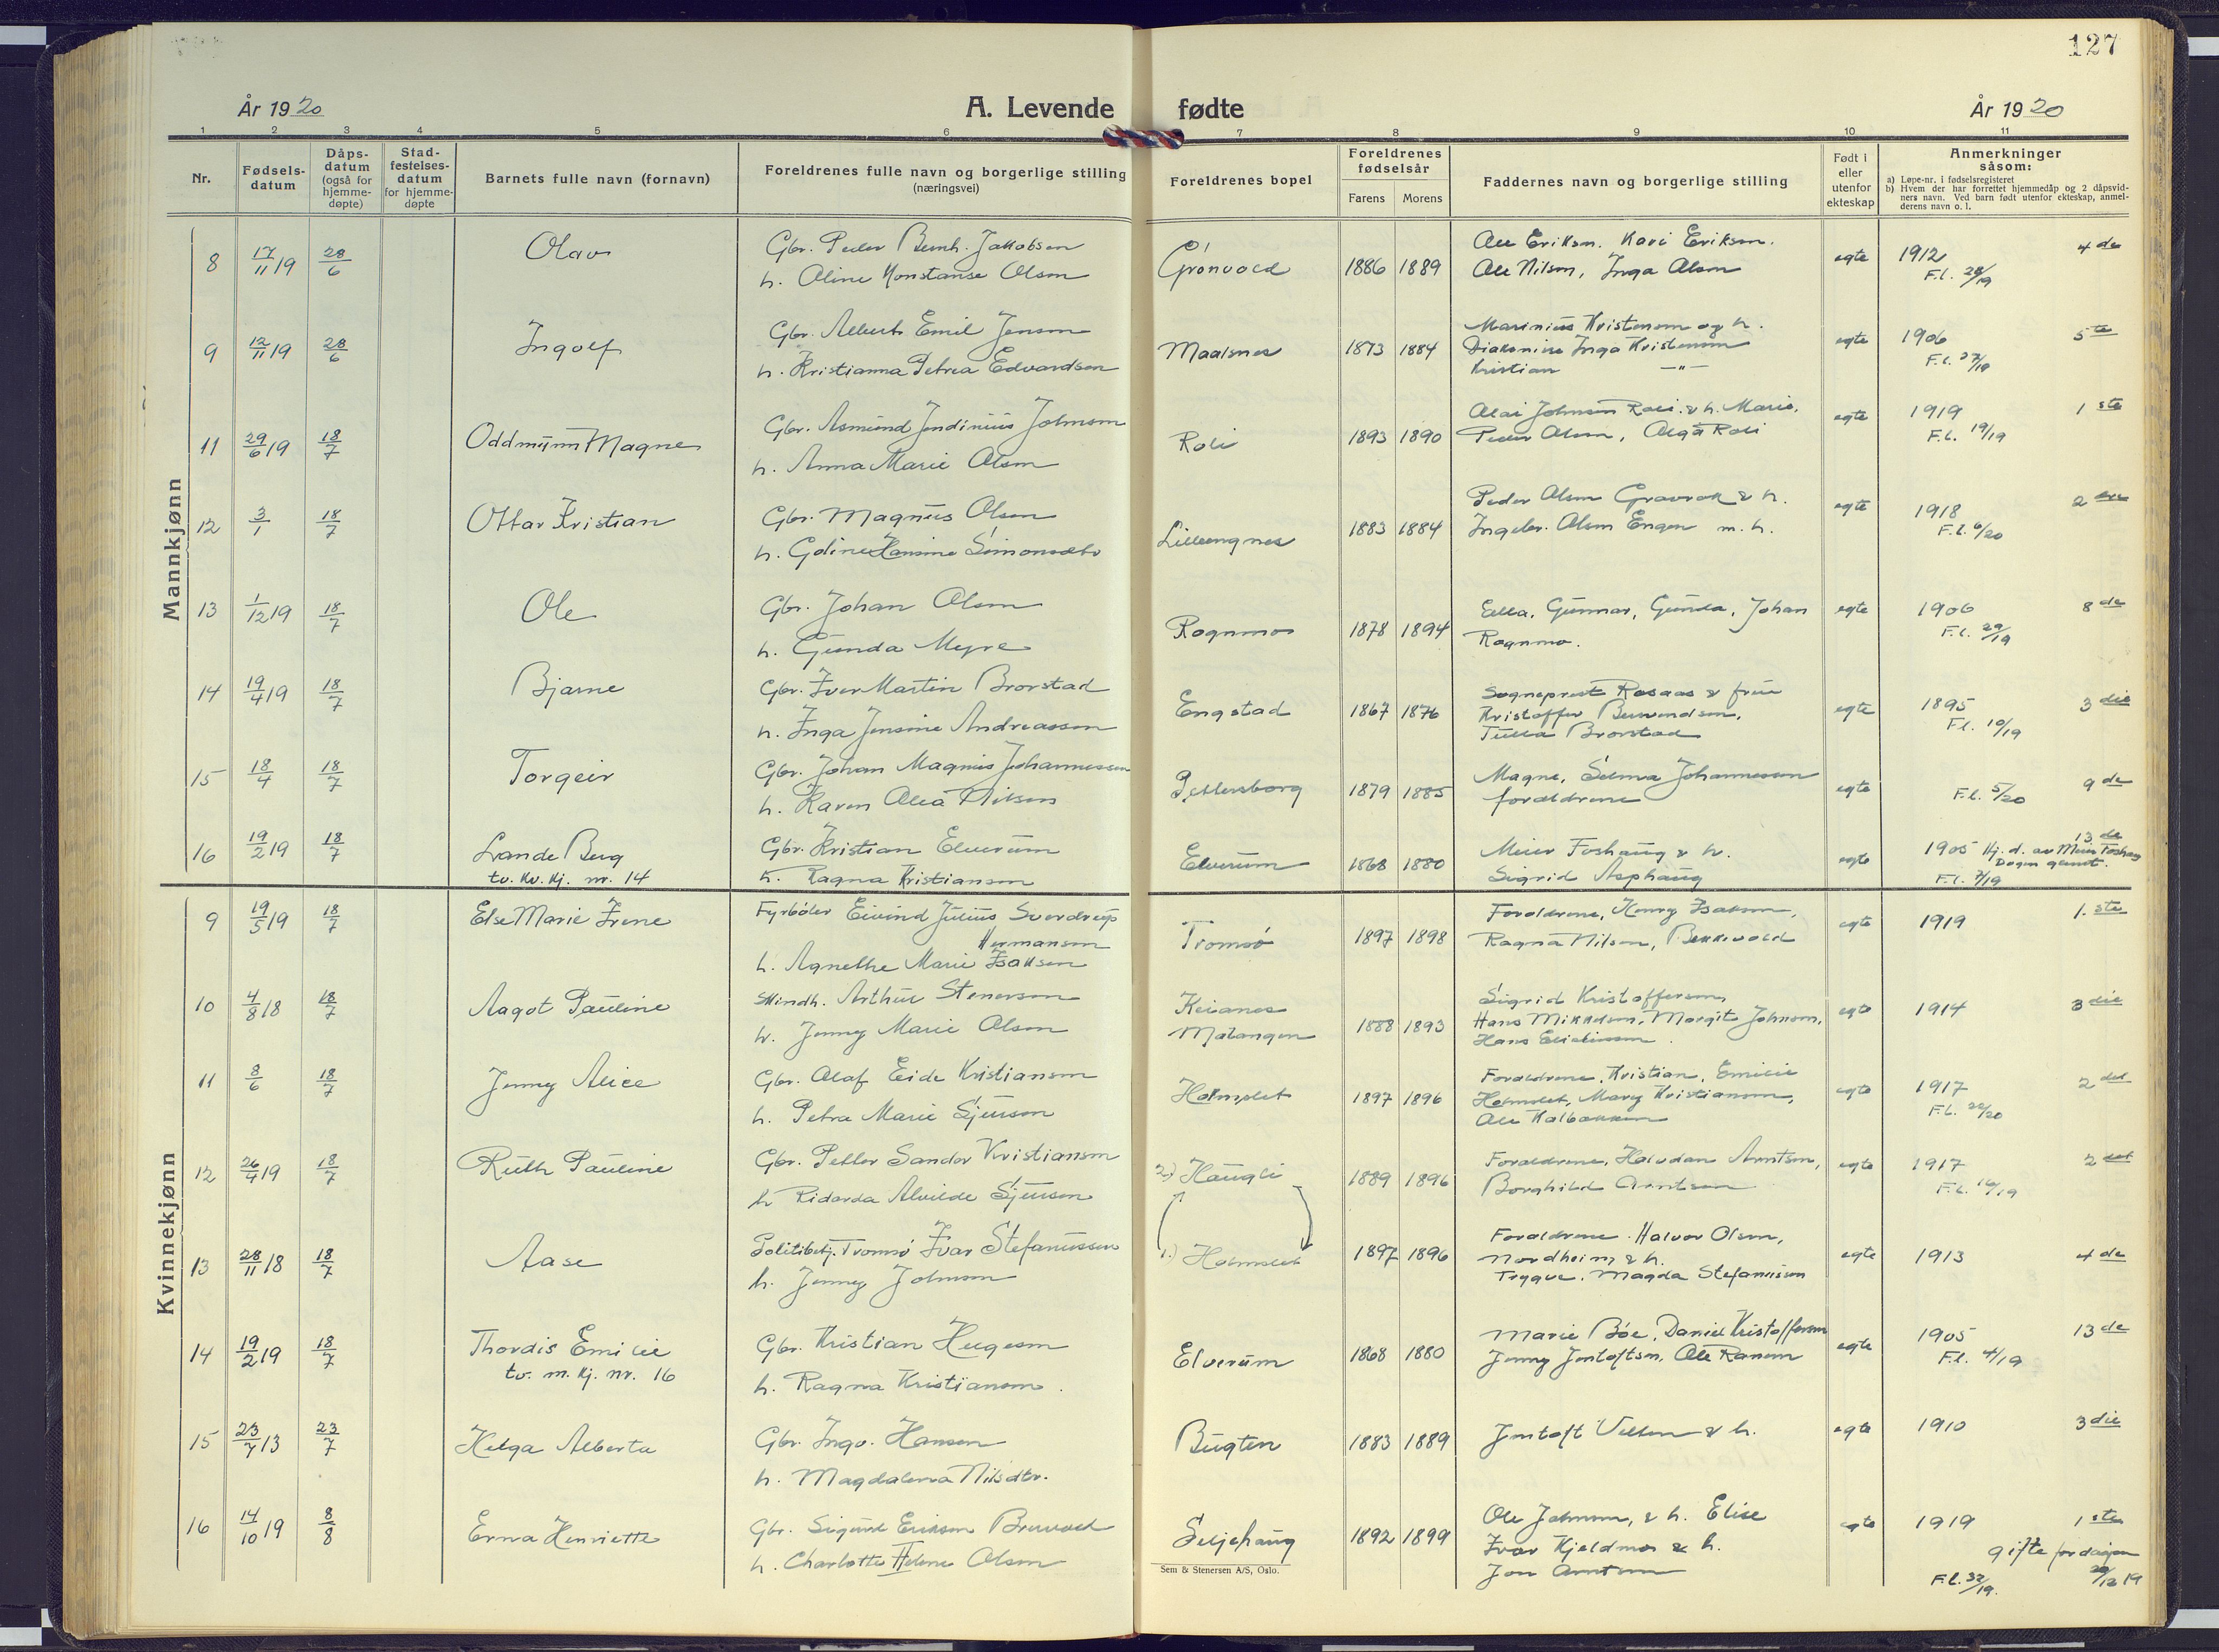 127
År 1920
A. Levende fødte
År 1920
1 2 3 4 5 6 7 8 9 10 11
Nr.
Fødselsdatum
Dåpsdatum (også for hjemmedøpte)
Stadfestelsesdatum for hjemmedøpte
Barnets fulle navn (fornavn)
Foreldrenes fulle navn og borgerlige stilling (næringsvei)
Foreldrenes bopel
Foreldrenes fødselsår
Farens Morens
Faddernes navn og borgerlige stilling
Født i eller utenfor ekteskap
Anmerkninger såsom:
a) Løpe-nr. i fødselsregisteret
b) Hvem der har forrettet hjemmedåp og 2 dåpsvidners navn. Ved barn født utenfor ekteskap, anmelderens navn o. l.
Mannkjønn
8 17/11 19 28/6 Olav Gbr. Peder Bernh. Jakobsen
h. Oline Konstanse Olsen
Grönvold 1886 1889
Ole Eriksen. Kari Eriksen.
Ole Nilsen, Inga Olsen
egte 1912 4de
F.l. 28/19
9 12/11 19 28/6 Ingolf Gbr. Albert Emil Jensen
h. Kristianna Petrea Edvardsen
Maalsnes 1873 1884
Marinius Kristensen og h.
Diakonisse Inga Kristensen
Kristian —"—
egte 1906 5te
F.l. 27/19
11 29/6 19 18/7 Oddmunn Magne Gbr. Asmund Jendinius Johnsen
h. Anna Marie Olsen
Roli 1893 1890
Olai Johnsen Roli & h. Marie.
Peder Olsen, Olga Roli
egte 1919 1ste
F.l. 19/19
12 3/1 18/7 Ottar Kristian Gbr. Magnus Olsen
h. Goline Hansine Simonsdtr
Lillengnes 1883 1884
Peder Olsen Gravrok & h.
Ingebr. Olsen Engen m. h.
egte 1918 2
F.l. 6/20
13 1/12 19 18/7 Ole Gbr. Johan Olsen
h. Gunda Myre
Rognmo 1878 1894
Ella, Gunnar, Gunda, Johan
Rognmo.
egte 1906 8de
F.l. 29/19
14 19/4 19 18/7 Bjarne Gbr. Iver Martin Brorstad
h. Inga Jensine Andreassen
Engstad 1867 1876
Sogneprest Rosaas & frue
Kristoffer Berendsen,
Tulla Brorstad
egte 1895 3die
F.l. 10/19
15 18/4 18/7 Torgeir Gbr. Johan Magnus Johannessen
h. Karen Olea Nilsen
Pettersborg 1879 1885
Magne, Selma Johannessen
foreldrene
egte F.l. 5/20 9de
16 19/2 19 18/7 Lrande Berg
tv. Kv. Kj. nr. 14
Gbr. Kristian Elverum
h. Ragna Kristiansen
Elverum 1868 1880
Meier Foshaug & h.
Sigrid Asphaug
egte 1905 13de
Hj. d. av Meier Foshaug
F.l. 3/19
Kvinnekjønn
9 19/5 19 18/7 Else Marie Irene Fyrbøder Eivind Julius Sverdrup
Hermansen
h. Agnethe Marie Isaksen
Tromsö 1897 1898
Foreldrene, Henry Isaksen,
Ragna Nilsen, Bekkevold
egte 1919 1.ste
10 4/8 18 18/7 Aagot Pauline Skindh. Arthur Stenersen
h. Jenny Marie Olsen
Keianes
Malangen
1888 1893
Sigrid Kristoffersen,
Hans Mikkelsen, Margit Johnsen,
Hans
egte 1914 3die
11 8/6 18/7 Jenny Alice Gbr. Olaf Eide Kristiansen
h. Petra Marie Sjursen
Holmslet 1897 1896
Foreldrene, Kristian, Emilie
Holmslet, Mary Kristiansen,
Ole Kalbakken
egte 1917 2det
F.l. 22/20
12 26/4 19 18/7 Ruth Pauline Gbr. Petter Sandor Kristiansen
h Ridarda Alvilde Sjursen
2.) Haugli 1889 1896
Foreldrene, Halvdan Arntsen,
Borghild Arntsen
egte 1917 2det
F.l. 16/19
13 28/11 18 18/7 Aase Politibetj. Tromsö Ivar Stefanussen
h. Jenny Johnsen
1.) Holmslet 1897 1896
Foreldrene. Halvor Olsen,
Nordheim & h.
Trygve. Magda Stefanussen
egte 1913 4de
14 19/2 19 18/7 Thordis Emilie
tv. m. Kj. nr. 16
Gbr. Kristian Helgesen
h. Ragna Kristiansen.
Elverum 1868 1880
Marie Böe, Daniel Kristoffersen
Jenny Jentoftsen, Ole Ransen
egte 1905 13de
F.l. 4/19
15 23/7 13 23/7 Helga Alberta Gbr. Ingv. Hansen
h. Magdalena Nilsdtr.
Bugten 1883 1889
Jentoft & h.
egte 1910 3die
16 14/10 19 8/8 Erna Henriette Gbr. Sigurd Eriksen Bruvold
h. Charlotte Helene Olsen
Seljehaug 1892 1899
Ole Johnsen, & h. Elise
Ivar Kjeldmo & h.
Jon Arntsen
egte 1919 1ste
Gifte for dagen
29/12 19
F.l. 32/19.
Sem & Stenersen A/S, Oslo.